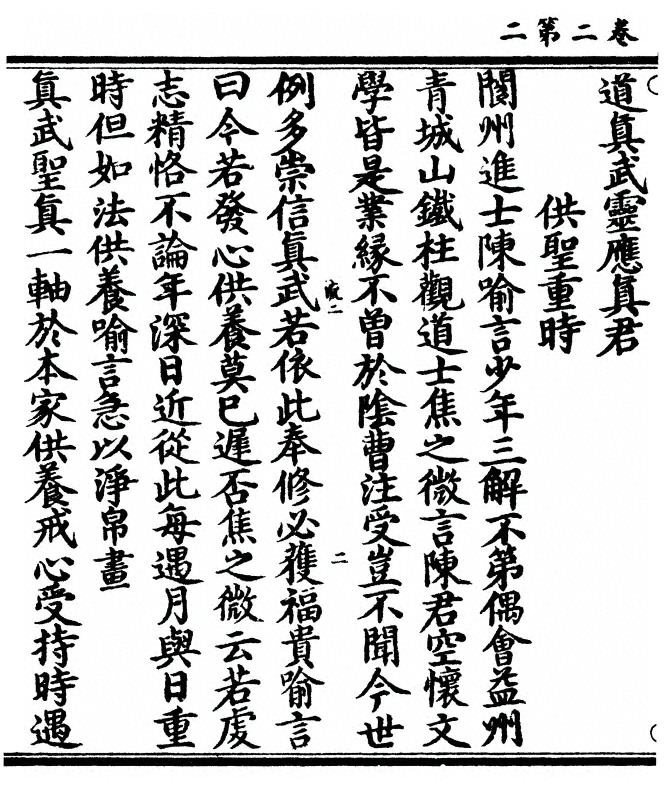 卷二第二
道眞武靈應眞君
供聖重時
閬州進士陳喻言少年三解不第偶會益州
青城山鐵柱觀道士焦之微言陳君空懷文
學皆是業緣不曾於陰曹注受豈不聞今世
例多崇信眞武若依此奉修必獲福貴喻言
曰今若發心供養莫已遲否焦之微云若虔
志精恪不論年深日近從此每遇月與日重
時但如法供養喻言急以淨帛畫
眞武聖眞一軸於本家供養戒心受持時遇